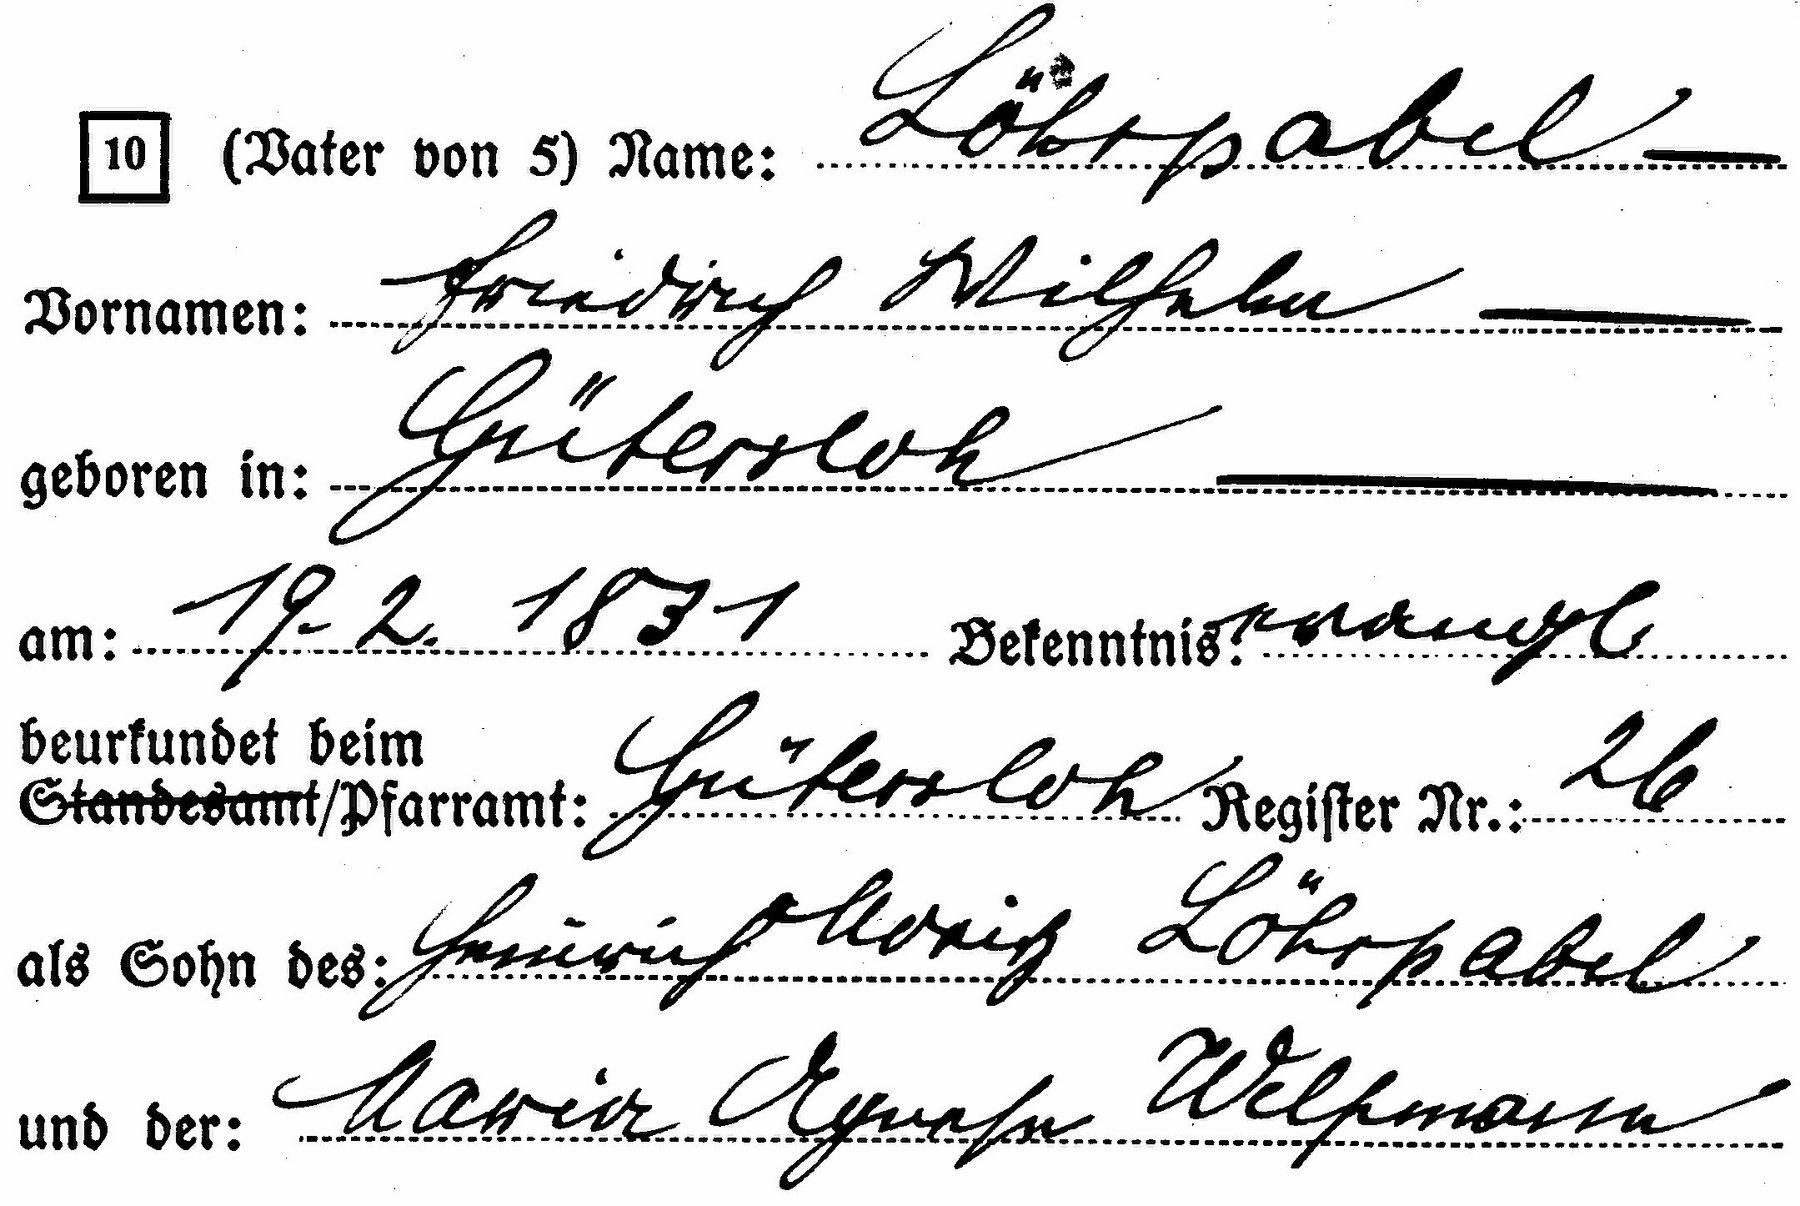 10 (Vater von 5) Name: Löhrpabel
Vornamen: Friedrich Wilhelm
geboren in: Gütersloh
am: 19. 2. 1831 Bekenntnis: evangl
beurkundet beim
Standesamt/Pfarramt: Gütersloh Register Nr.: 26
als Sohn des: Heinrich Moritz Löhrpabel
und der: Maria Agnese Welpmann